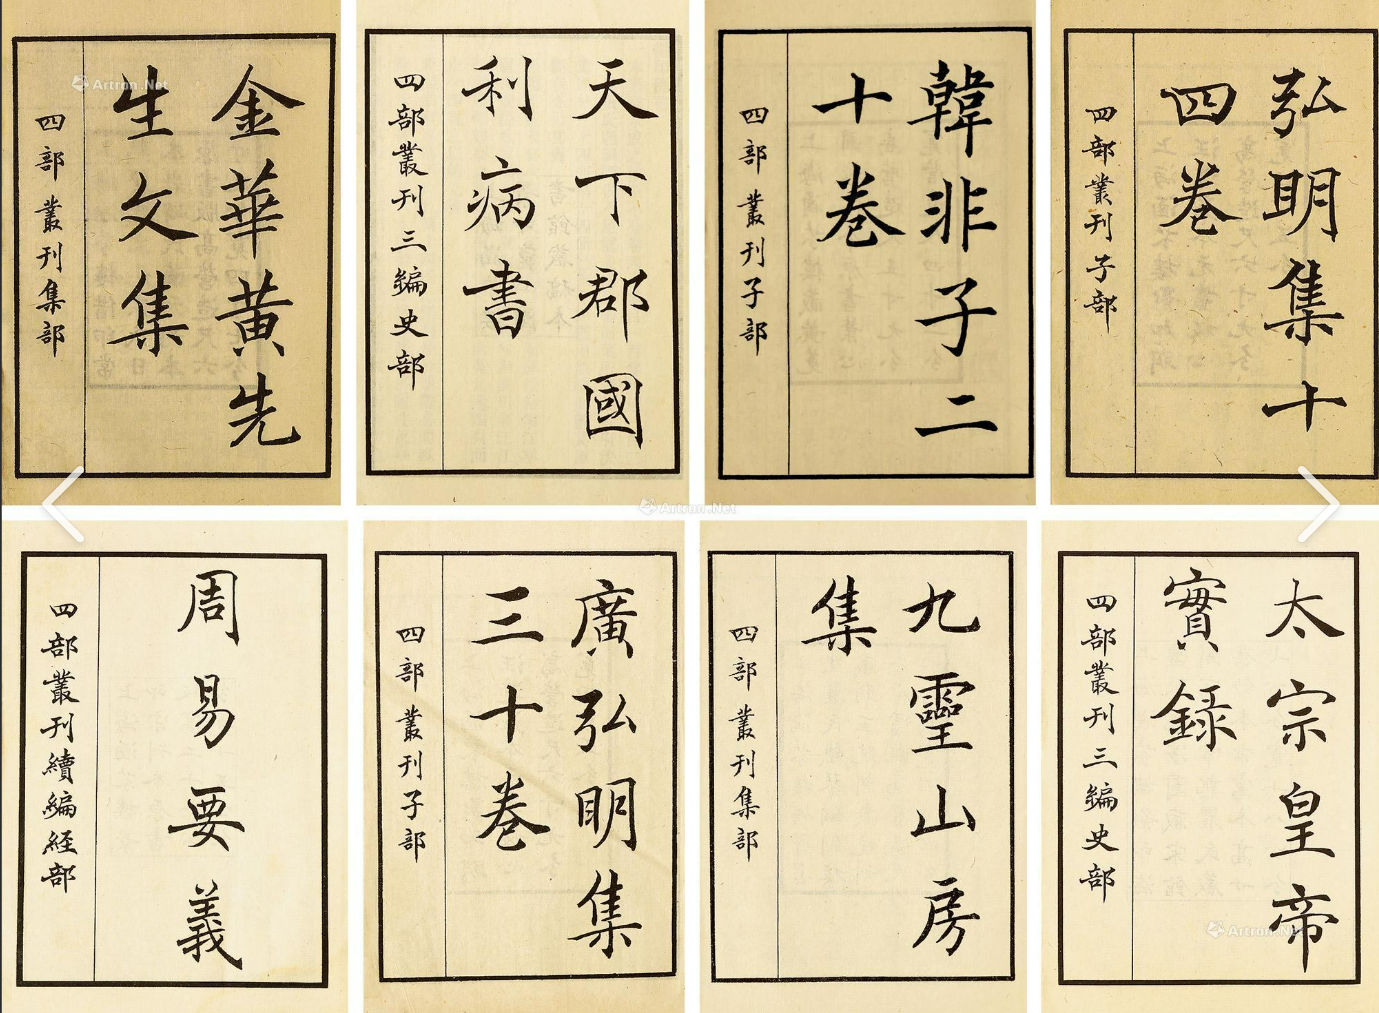 弘明集十
四卷
四部叢刊子部
韓非子二
十卷
四部叢刊子部
天下郡國
利病書
四部叢刊三編史部
金華黃先
生文集
四部叢刊集部
太宗皇帝
實録
四部叢刊三編史部
九靈山房
集
四部叢刊集部
廣弘明集
三十卷
四部叢刊子部
周易要義
四部叢刊續編経部
Artron.Net
Artron.Net
Artron.Net